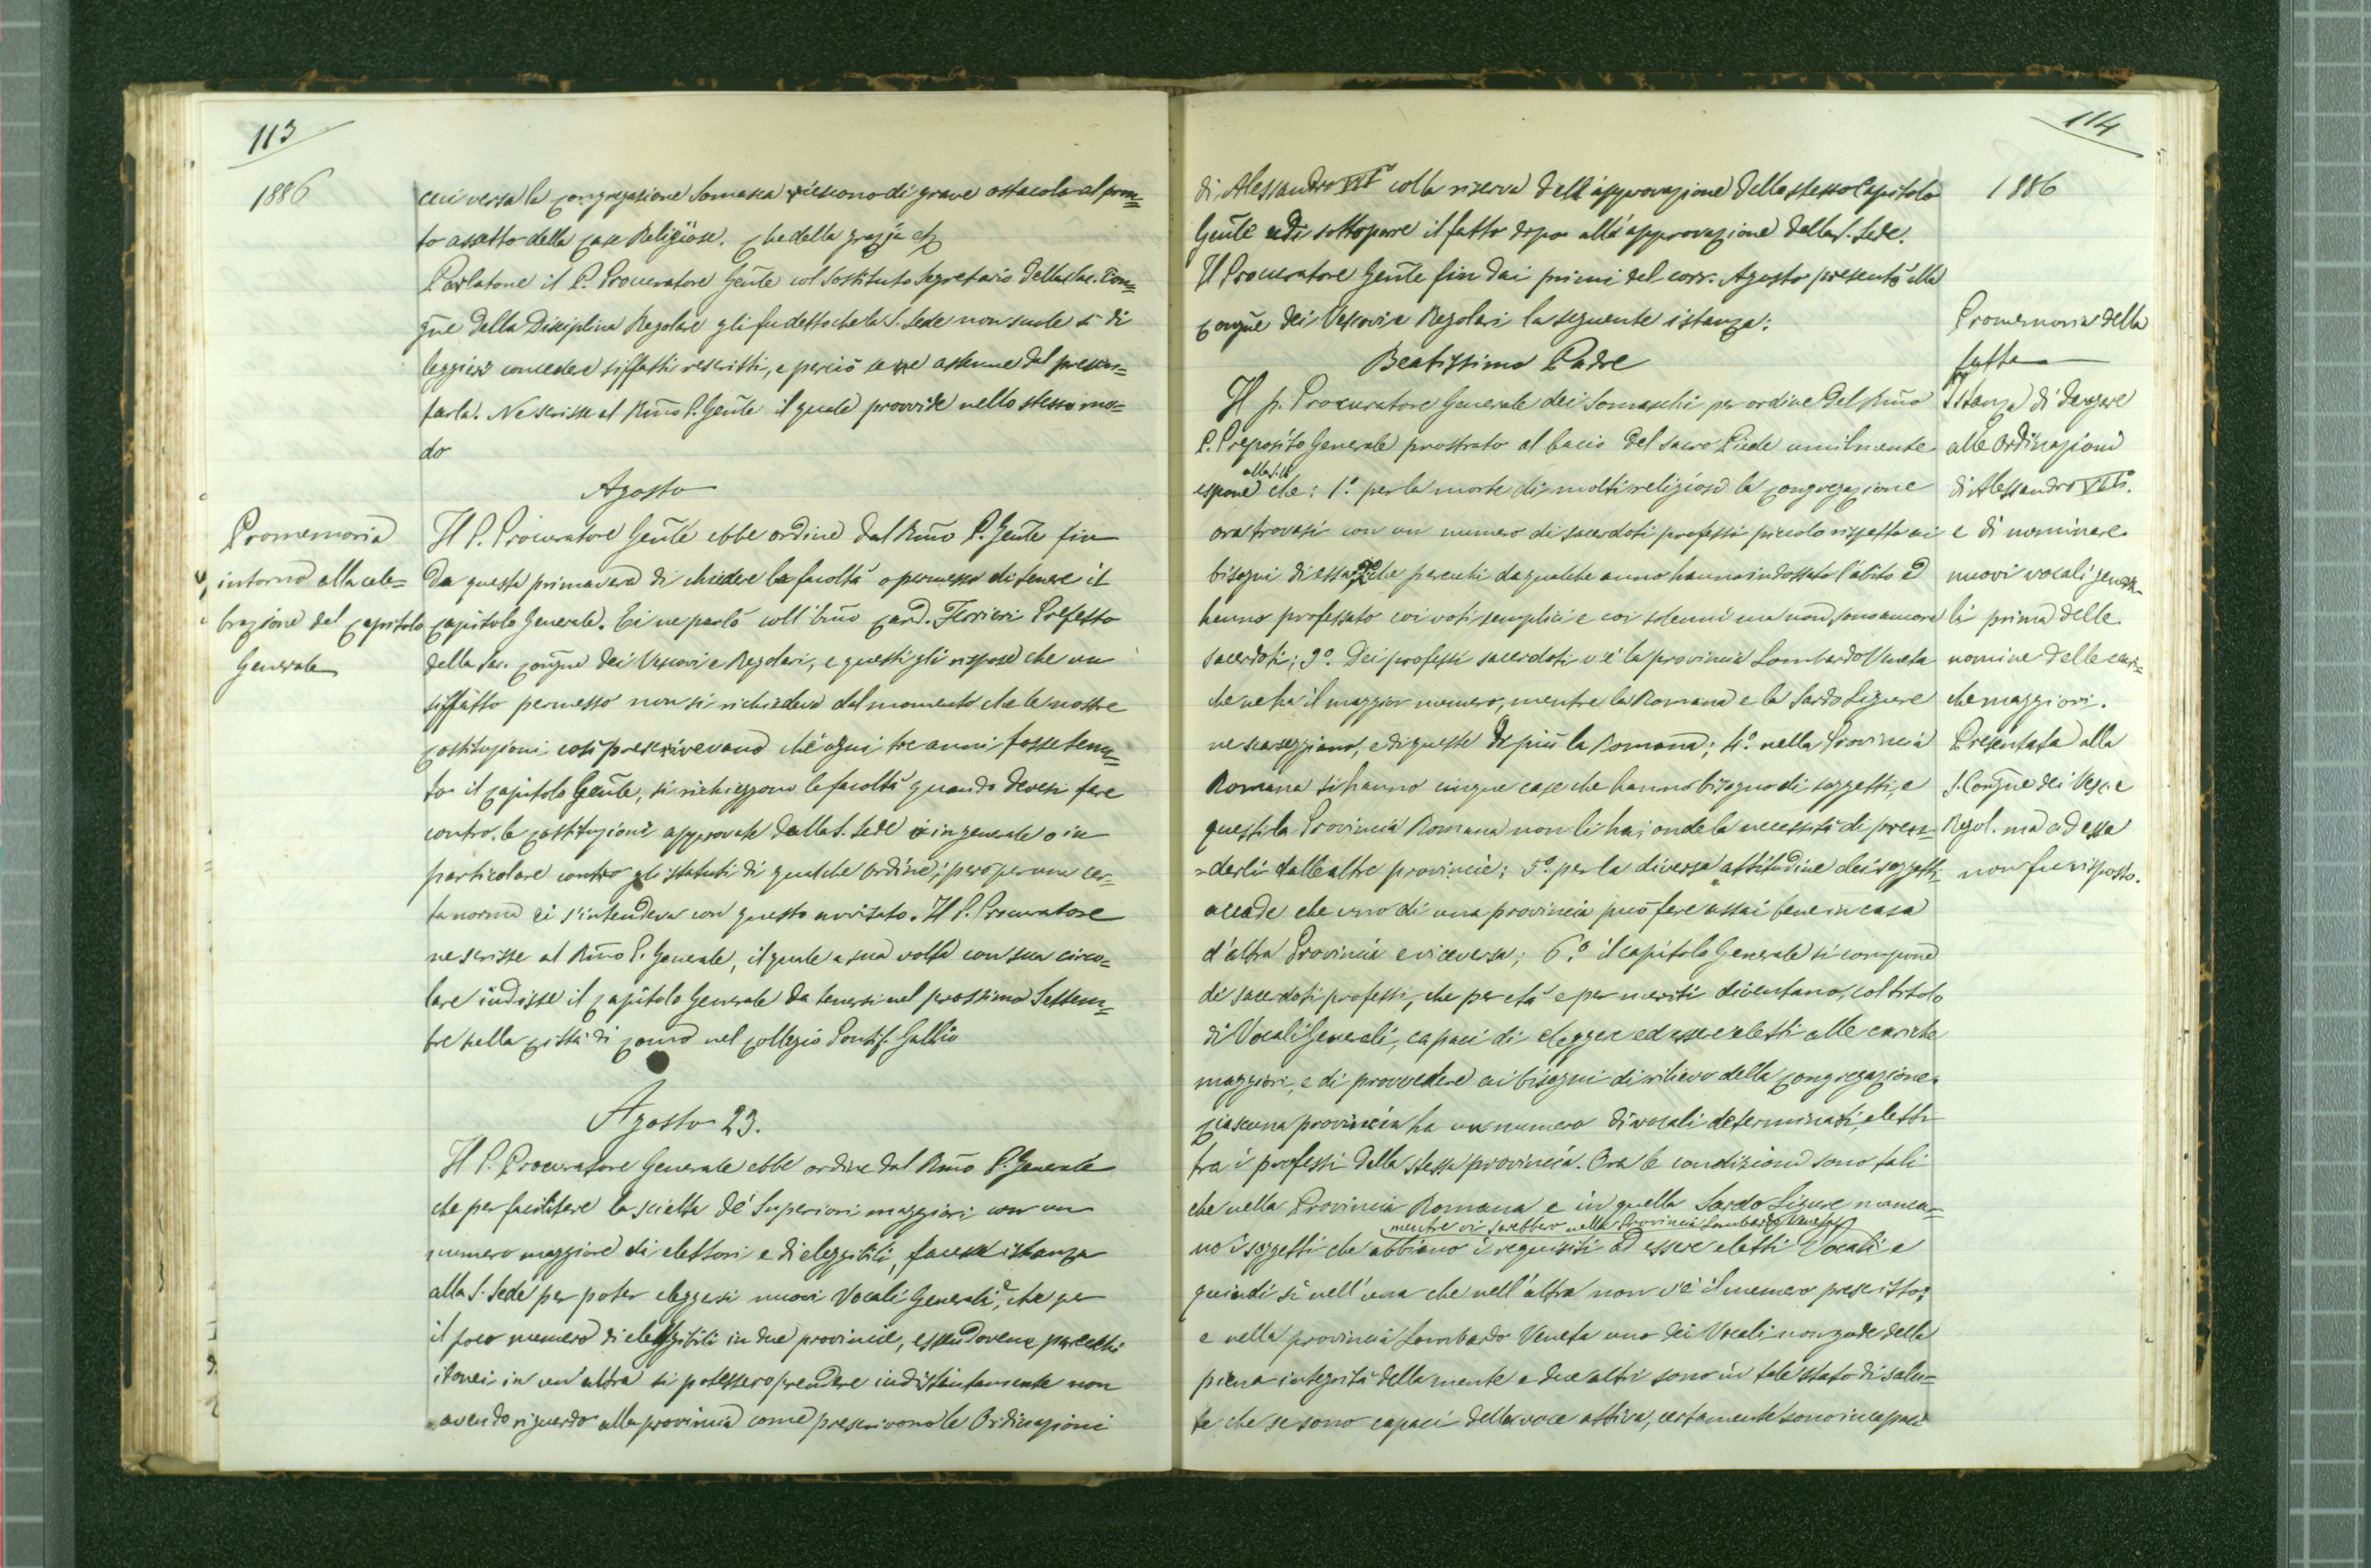 113
1886
cui versa la Congregazione Somasca riescono di grave ostacolo al pron=
to assetto della case Religiose. Che della grazia etc
Parlatone il P. Procuratore Gen̅le col Sostituto Segretario della Sac. Con=
gne della Disciplina Regolare gli fu detto che la S. Sede non suole sì di
leggieri concedere siffatti rescritti, e perciò se ne astenne dal presen=
tarla. Ne scrisse al Rm̅o P. Gen̅le il quale provvide nello stesso mo=
do
Agosto
Promemoria
intorno alla cele=
brazione del Capitolo
Generale
Il P. Procuratore Gen̅le ebbe ordine dal Rm̅o P. Gen̅le fin
da questa primavera di chiedere la facoltà o permesso di tenere il
Capitolo Generale. Ei ne parlò coll'Em̅o Card. Ferrieri Prefetto
della Sac. Congne dei Vescovi e Regolari, e questi gli rispose che un
siffatto permesso non si richiedeva dal momento che le nostre
Costituzioni così prescrivevano che ogni tre anni fosse tenu=
to il Capitolo Gen̅le, si richieggono le facoltà quando devesi fare
contro le Costituzioni approvate dalla S. Sede o in generale o in
particolare contro gli statuti di qualche ordine; però per una cer=
ta norma ei s'intendeva con questo avvisato. Il P. Procuratore
ne scrisse al Rm̅o P. Generale, il quale a sua volta con sua circo=
lare indisse il Capitolo Generale da tenersi nel prossimo Settem=
bre nella Città di Como nel Collegio Pontif. Gallio
Agosto 23.
Il P. Procuratore Generale ebbe ordine dal Rm̅o P. Generale
che per facilitare la scielta de' Superiori maggiori con un
numero maggiore di elettori e di eleggibili, facesse istanza
alla S. Sede per poter eleggersi nuovi Vocali Generali, e che per
il poco numero di eleggibili in due provincie, essendovene parecchi
idonei in un'altra si potessero prendere indistintamente non
avendo riguardo alla provincia come prescrivono le Ordinazioni
114
1886
di Alessandro VII° colla riserva dell'approvazione dello stesso Capitolo
Gen̅le e di sottoporre il fatto dopo all'approvazione della S. Sede.
Il Procuratore Gen̅le fin dai primi del corr. Agosto presentò alla
Congne dei Vescovi e Regolari la seguente istanza:
Beatissimo Padre
Il P. Procuratore Generale dei Somaschi per ordine del Rm̅o
P. Preposito Generale prostrato al bacio del sacro Piede umilmente
alla S.V.
espone che: 1.° per la morte di molti religiosi la Congregazione
ora trovasi con un numero di sacerdoti professi piccolo rispetto ai
bisogni di essa; 2° che parecchi da qualche anno hanno indossato l'abito e
hanno professato coi voti semplici e coi solenni ma non sono ancora
sacerdoti; 3°. Dei professi sacerdoti v'è la provincia Lombardo Veneta
che ne ha il maggior numero, mentre la Romana e la Sardo Ligure
ne scarseggiano, e di queste di più la Romana; 4.° nella Provincia
Romana si hanno cinque case che hanno bisogno di soggetti, e
questi la Provincia Romana non li ha; onde la necessità di pren=
=derli dalle altre provincie; 5° per la diversa attitudine dei soggetti
accade che uno di una provincia può fare assai bene in casa
d'altra Provincia e viceversa; 6.° il Capitolo Generale si compone
di sacerdoti professi, che per età e per meriti diventano, col titolo
di Vocali Generali, capaci di eleggere ed essere eletti alle cariche
maggiori, e di provvedere ai bisogni di rilievo della Congregazione.
Ciascuna provincia ha un numero di vocali determinati, eletti
fra i professi della stessa provincia. Ora le condizioni sono tali
che nella Provincia Romana e in quella Sardo Ligure manca=
mentre vi sarebbero nella Provincia Lombardo Veneta
no i soggetti che abbiano i requisiti ad essere eletti Vocali e
quindi sì nell'una che nell'altra non v'è il numero prescritto;
e nella provincia Lombardo Veneta uno dei Vocali non gode della
piena integrità della mente e due altri sono in tale stato di salu=
te che se sono capaci della voce attiva, certamente sono incapaci
Promemoria della
fatta
Istanza di derogare
alle Ordinazioni
di Alessandro VII°.
e di nominare
nuovi vocali genera=
li prima delle
nomine delle cari=
che maggiori.
Presentata alla
S. Congne dei Vesc. e
Regol. ma ad essa
non fu risposto.